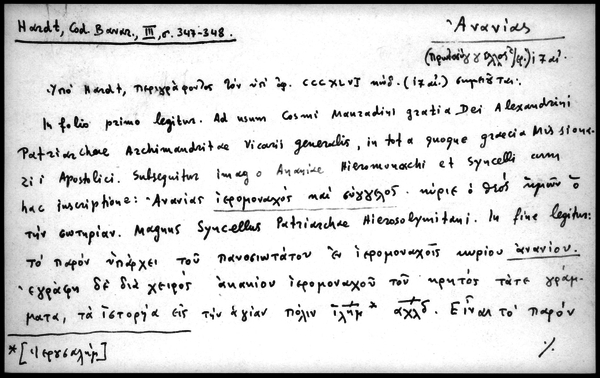 Hardt, Cod. Bavar., III, σ. 347-348.
Ἀνανίας
(πρωτοσύγγελος/ἱφ.) ιζ αἰ.
Ὑπό Hardt, περιγράφοντος τόν ὑπ' ἀρ. CCCXLVI κώδ. (ιζ αἰ.) σημειοῦται:
In folio primo legitur. Ad usum Cosmi Mauzadini gratia Dei Alexandrini
Patriarchae Archimandritae Vicarii generalis, in tota quoque graecia Missiona-
rii Apostolici. Subsequitur imago Ananiae Hieromonachi et Syncelli cum
hac inscriptione: Ἀνανίας ἱερομοναχός καί σύγγελος. κύριε ὁ θεός ἡμῶν ὁ
τήν σωτηρίαν. Magnus Syncellus Patriarchae Hierosolymitani. In fine legitur:
τό παρόν ὑπάρχει τοῦ πανοσιωτάτου ἐν ἱερομοναχοῖς κυρίου ἀνανίου.
ἐγράφη δέ διά χειρός ἀκακίου ἱερομοναχοῦ τοῦ κρητός τάτε γράμ-
ματα, τά ἱστορήα εἰς τήν ἁγίαν πόλιν ἰλήμ* αχλδ. Εἶναι τό παρόν
*[Ἱερουσαλήμ]
./.